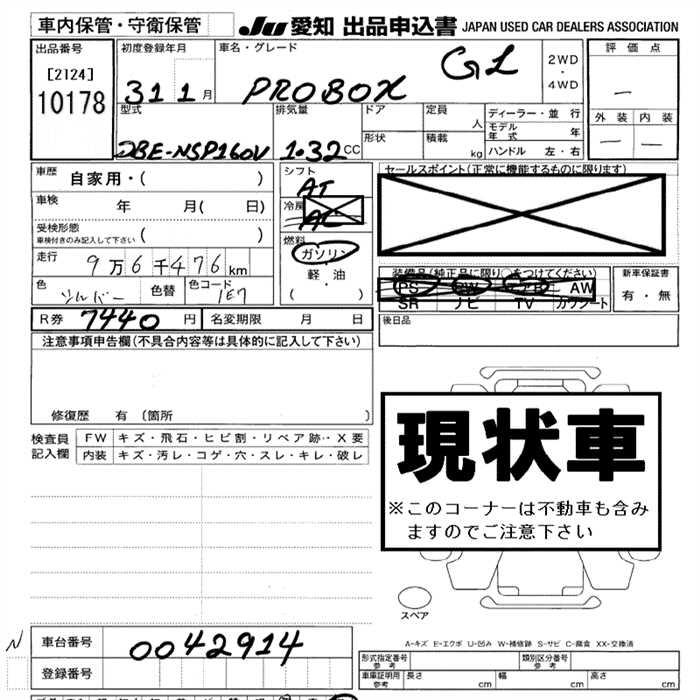 車内保管・守衛保管 JU 愛知 出品申込書 JAPAN USED CAR DEALERS ASSOCIATION
出品番号 初度登録年月 車名・グレード 評価点
[2124] 31 1 月 PROBOX GL 2WD・4WD
10178
型式 排気量 ドア 定員 人 ディーラー・並行 外装 内装
モデル年式 年
DBE-NSP160V 1.32 CC 形状 積載 kg ハンドル 左・右
車歴 自家用・( ) シフト AT セールスポイント(正常に機能するものに限ります)
車検 年 月( 日) 冷房 AC
受検形態 ( )
車検付きのみ記入して下さい
燃料 ガソリン
走行 9万6千476km 軽油
装備品(純正品に限り○をつけてください) 新車保証書
色 シルバー 色替 色コード 1E7 ( ・ ) PS PW エアB AW 有・無
SR ナビ TV カワシート
R券 7440 円 名変期限 月 日 後日品
注意事項申告欄(不具合内容等は具体的に記入して下さい)
修復歴 有 (箇所 )
現状車
※このコーナーは不動車も含み
ますのでご注意下さい
検査員記入欄 FW キズ・飛石・ヒビ割・リペア跡・・X要
内装 キズ・汚レ・コゲ・穴・スレ・キレ・破レ
スペア
A-キズ E-エクボ U-凹み W-補修跡 S-サビ C-腐食 XX-交換済
N 車台番号 0042914
登録番号
形式指定番号 参考 類別区分番号 参考
車庫証明用 参考 長さ cm 幅 cm 高さ cm